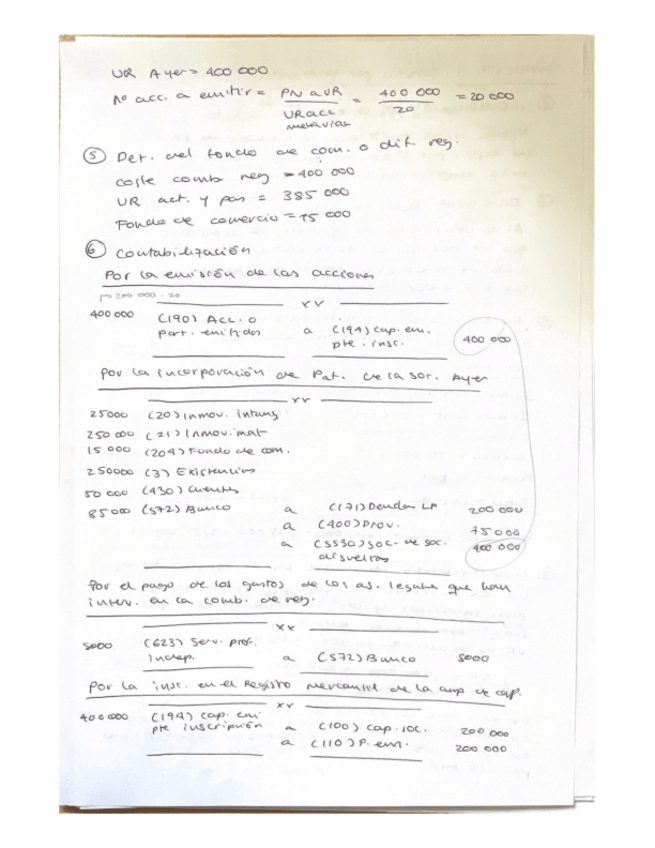 VR Ayer = 400 000
Nº acc. a emitir = PN a VR / VR acc Melavias = 400 000 / 20 = 20 000
⑤ Det. del fondo de com. o dif. neg.
coste comb neg = 400 000
VR act. y pas = 385 000
Fondo de comercio = 15 000
⑥ contabilización
Por la emisión de las acciones
200 000 · 20
xx
400 000 (190) Acc. o
part. emitidas a (194) cap. em. 400 000
pte. insc.
Por la incorporación de Pat. de la soc. Ayer
xx
25000 (20) Inmov. intang
250 000 (21) Inmov. mat
15 000 (204) Fondo de com.
250000 (3) Existencias
50 000 (430) clientes
85000 (572) Banco a (171) Deudas LP 200 000
a (400) Prov. 75000
a (5530) soc. de soc. 400 000
disueltas
Por el pago de los gastos de los as. legales que han
interv. en la comb. de neg.
xx
5000 (623) Serv. prof.
indep. a (572) Banco 5000
Por la insc. en el Registro mercantil de la amp de cap.
xx
400000 (194) cap. emi
pte inscripción a (100) cap. soc. 200 000
a (110) P. emi. 200 000